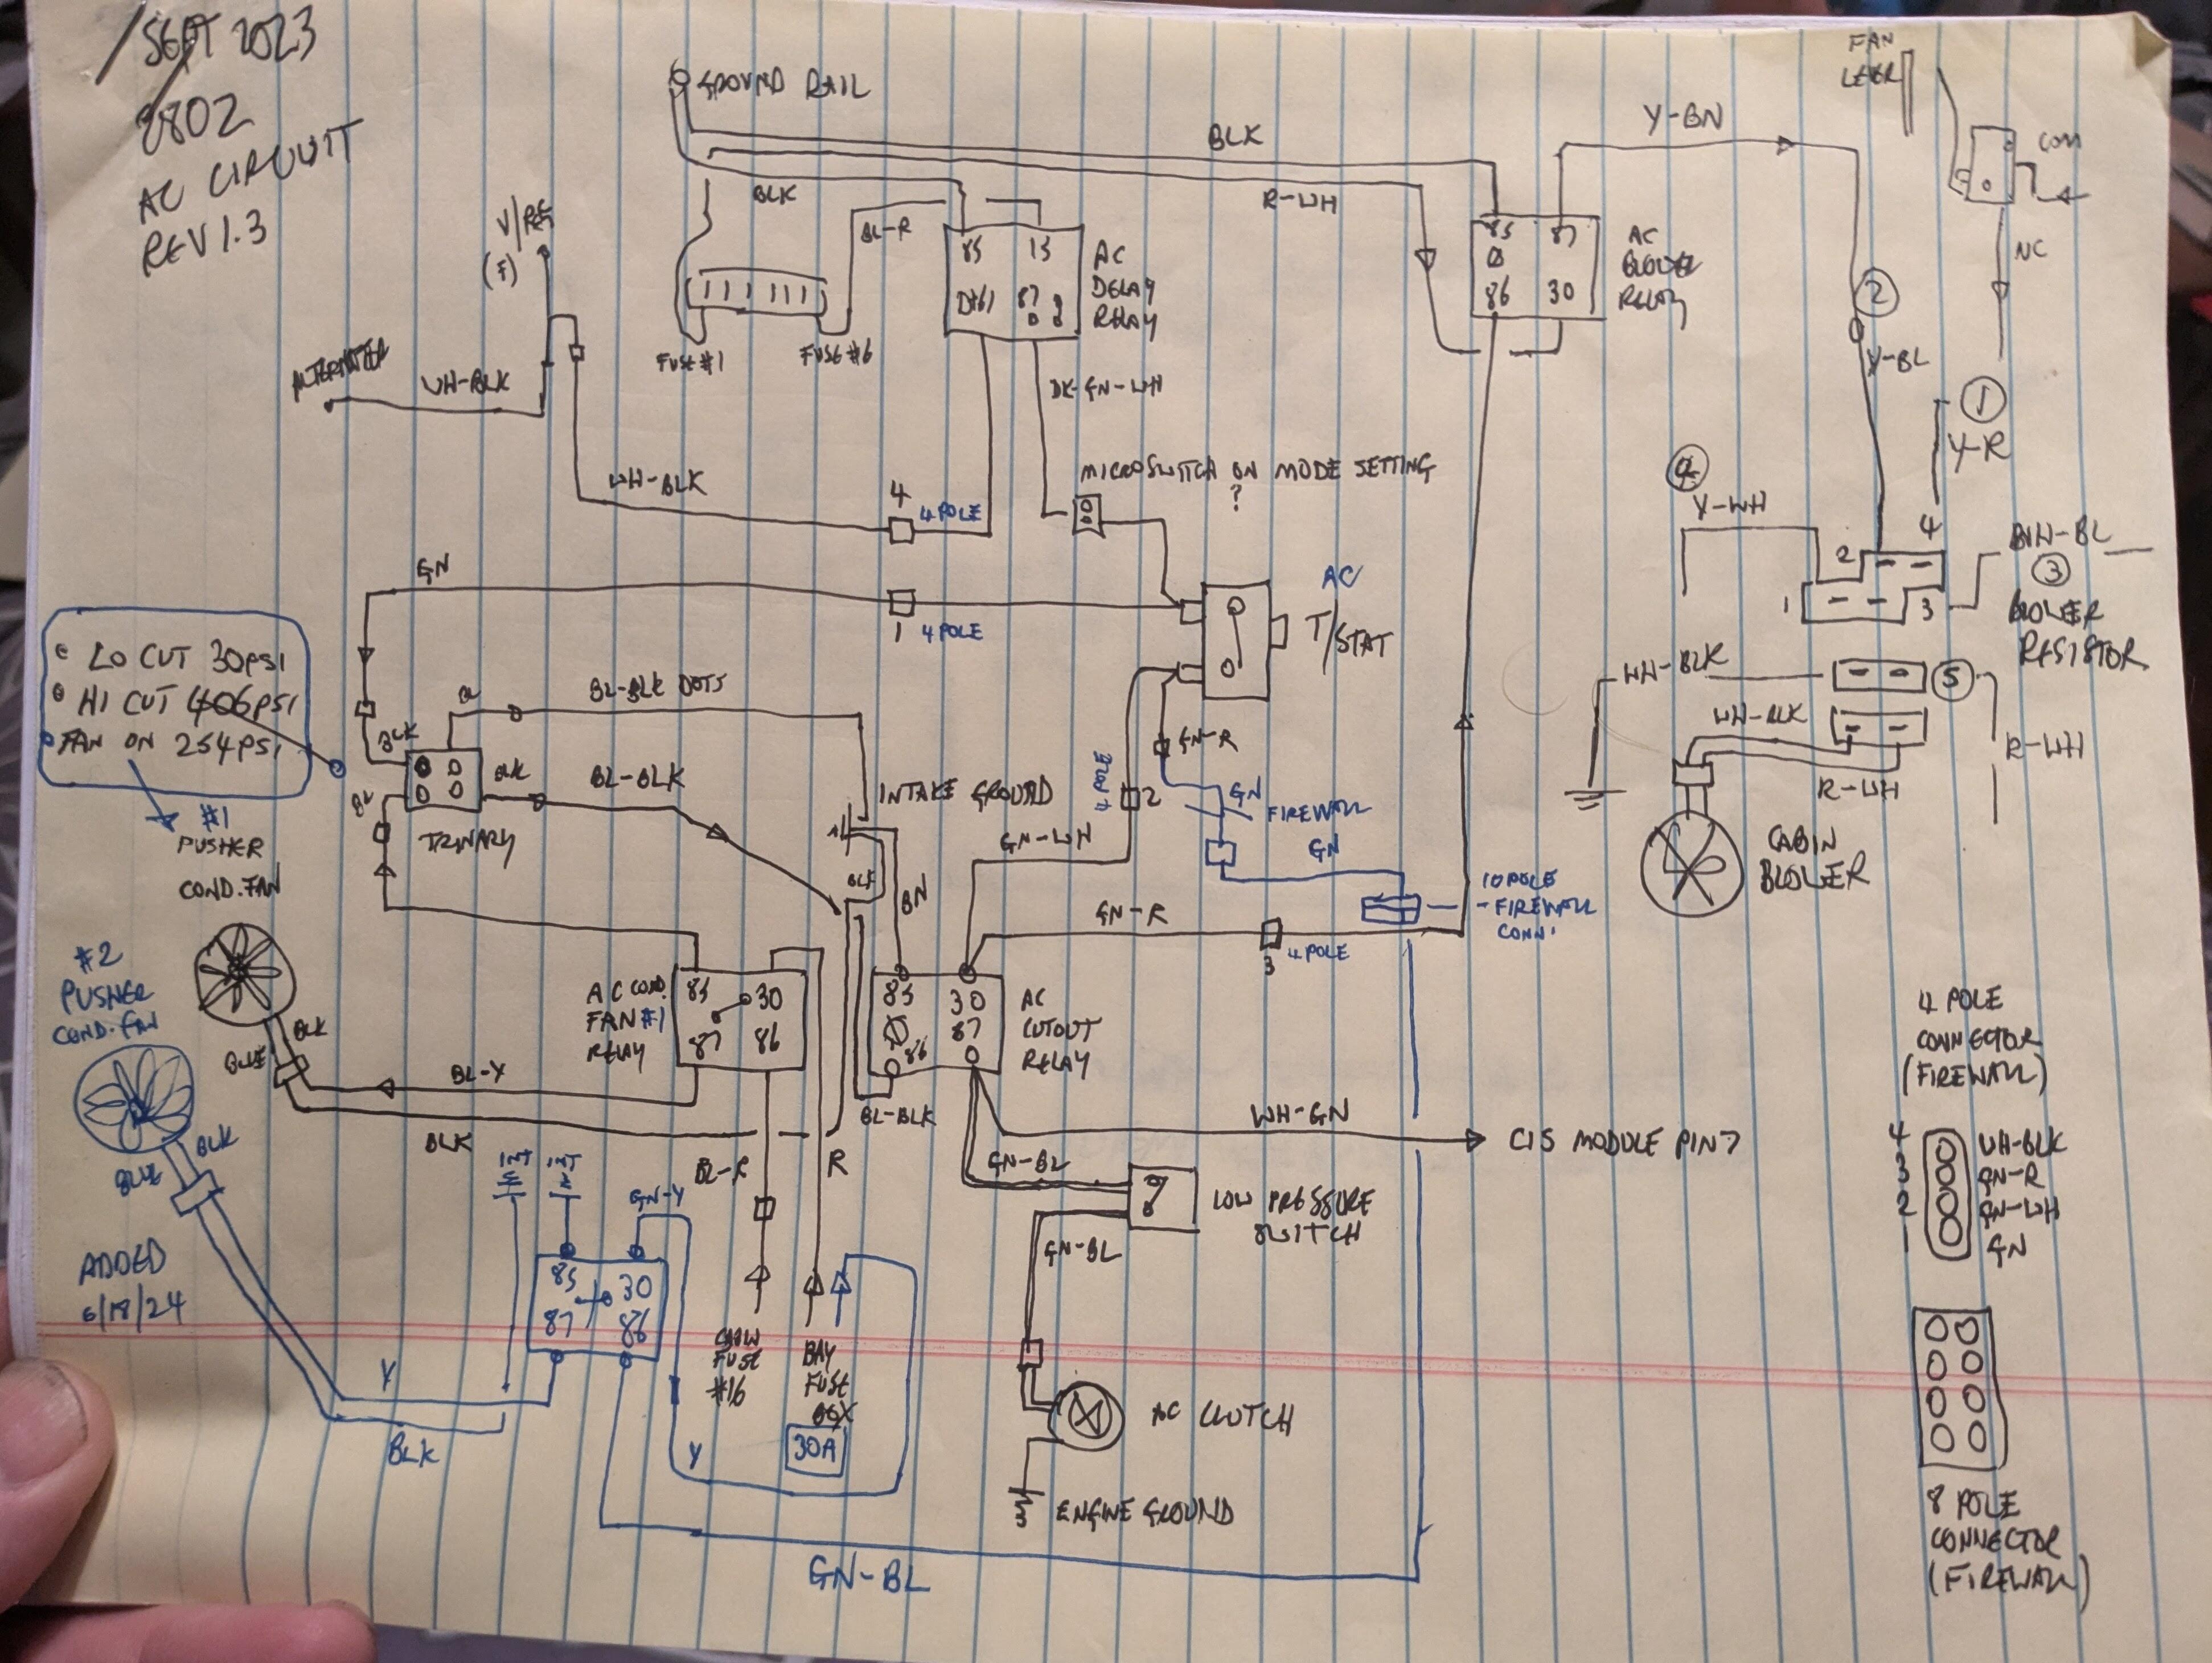 SEPT 2023
2802
AC CIRCUIT
REV 1.3
GROUND RAIL
BLK
R-WH
BLK
Y-BN
FAN
LEVER
COM
NC
V/REG
(F)
ALTERNATER
WH-BLK
BL-R
FUSE #1
FUSE #6
85 15
87
AC
DELAY
RELAY
DK-GN-WH
85 87
86 30
AC
BLOWER
RELAY
2
Y-BL
1
Y-R
4
Y-WH
WH-BLK
4
4 POLE
MICROSWITCH ON MODE SETTING
?
GN
1
4 POLE
AC
T/STAT
2
4
1
3
3
BLOWER
RESISTOR
WH-BLK
5
WH-BLK
R-WH
R-WH
CABIN
BLOWER
LO CUT 30PSI
HI CUT 406PSI
FAN ON 254PSI
#1
PUSHER
COND. FAN
BLK
BL
BL
BLK
BL-BLK DOTS
BL-BLK
TRINARY
INTAKE GROUND
BLK
BN
4 POLE
2
GN-WH
GN-R
GN
FIREWALL
GN
10 POLE
FIREWALL
CONN.
GN-R
3
4 POLE
#2
PUSHER
COND. FAN
BLUE
BLK
BLUE
BLK
BL-Y
BLK
AC COND.
FAN #1
RELAY
85 30
87 86
85 30
87
86
AC
CUTOUT
RELAY
BL-BLK
WH-GN
CIS MODULE PIN 7
GN-BL
LOW PRESSURE
SWITCH
GN-BL
BL-R
R
INT
INT
GN-Y
85 30
87 86
ADDED
6/18/24
Y
BLK
CABIN
FUSE
#16
BAY
FUSE
BOX
30A
Y
AC CLUTCH
ENGINE GROUND
GN-BL
4 POLE
CONNECTOR
(FIREWALL)
4 WH-BLK
3 GN-R
2 GN-WH
1 GN
8 POLE
CONNECTOR
(FIREWALL)